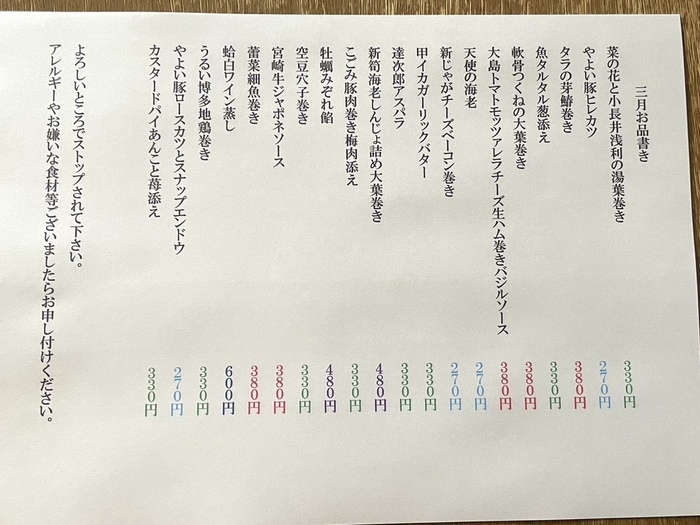 三月お品書き
菜の花と小長井浅利の湯葉巻き 330円
やよい豚ヒレカツ 270円
タラの芽鰆巻き 380円
魚タルタル葱添え 330円
軟骨つくねの大葉巻き 380円
大島トマトモッツァレラチーズ生ハム巻きバジルソース 380円
天使の海老 270円
新じゃがチーズベーコン巻き 270円
甲イカガーリックバター 330円
達次郎アスパラ 330円
新筍海老しんじょ詰め大葉巻き 480円
こごみ豚肉巻き梅肉添え 330円
牡蠣みぞれ餡 480円
空豆穴子巻き 330円
宮崎牛ジャポネソース 380円
蕾菜細魚巻き 380円
蛤白ワイン蒸し 600円
うるい博多地鶏巻き 330円
やよい豚ロースカツとスナップエンドウ 270円
カスタードパイあんこと苺添え 330円
よろしいところでストップされて下さい。
アレルギーやお嫌いな食材等ございましたらお申し付けください。